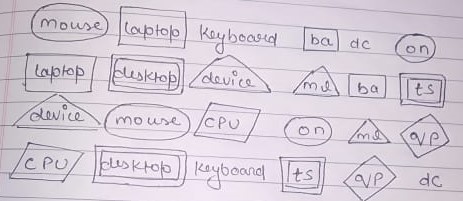 mouse laptop keyboard ba dc on
laptop desktop device md ba ts
device mouse CPU on md qp
CPU desktop keyboard ts qp dc